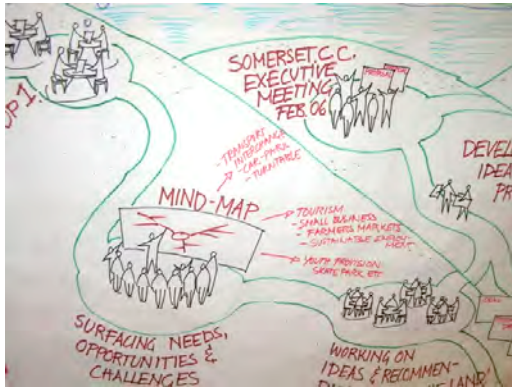 SOMERSET C.C.
EXECUTIVE
MEETING
FEB. '06
PROPOSAL
OP 1.
DEVEL
IDEA
PR
- TRANSPORT
INTERCHANGE
- CAR-PARK
- TURNTABLE
MIND-MAP
TOURISM
- SMALL BUSINESS
FARMERS MARKETS
- SUSTAINABLE EMPLOY-
MENT
YOUTH PROVISION
SKATE PARK ETC
SURFACING NEEDS,
OPPORTUNITIES &
CHALLENGES
WORKING ON
IDEAS & RECOMMEN-